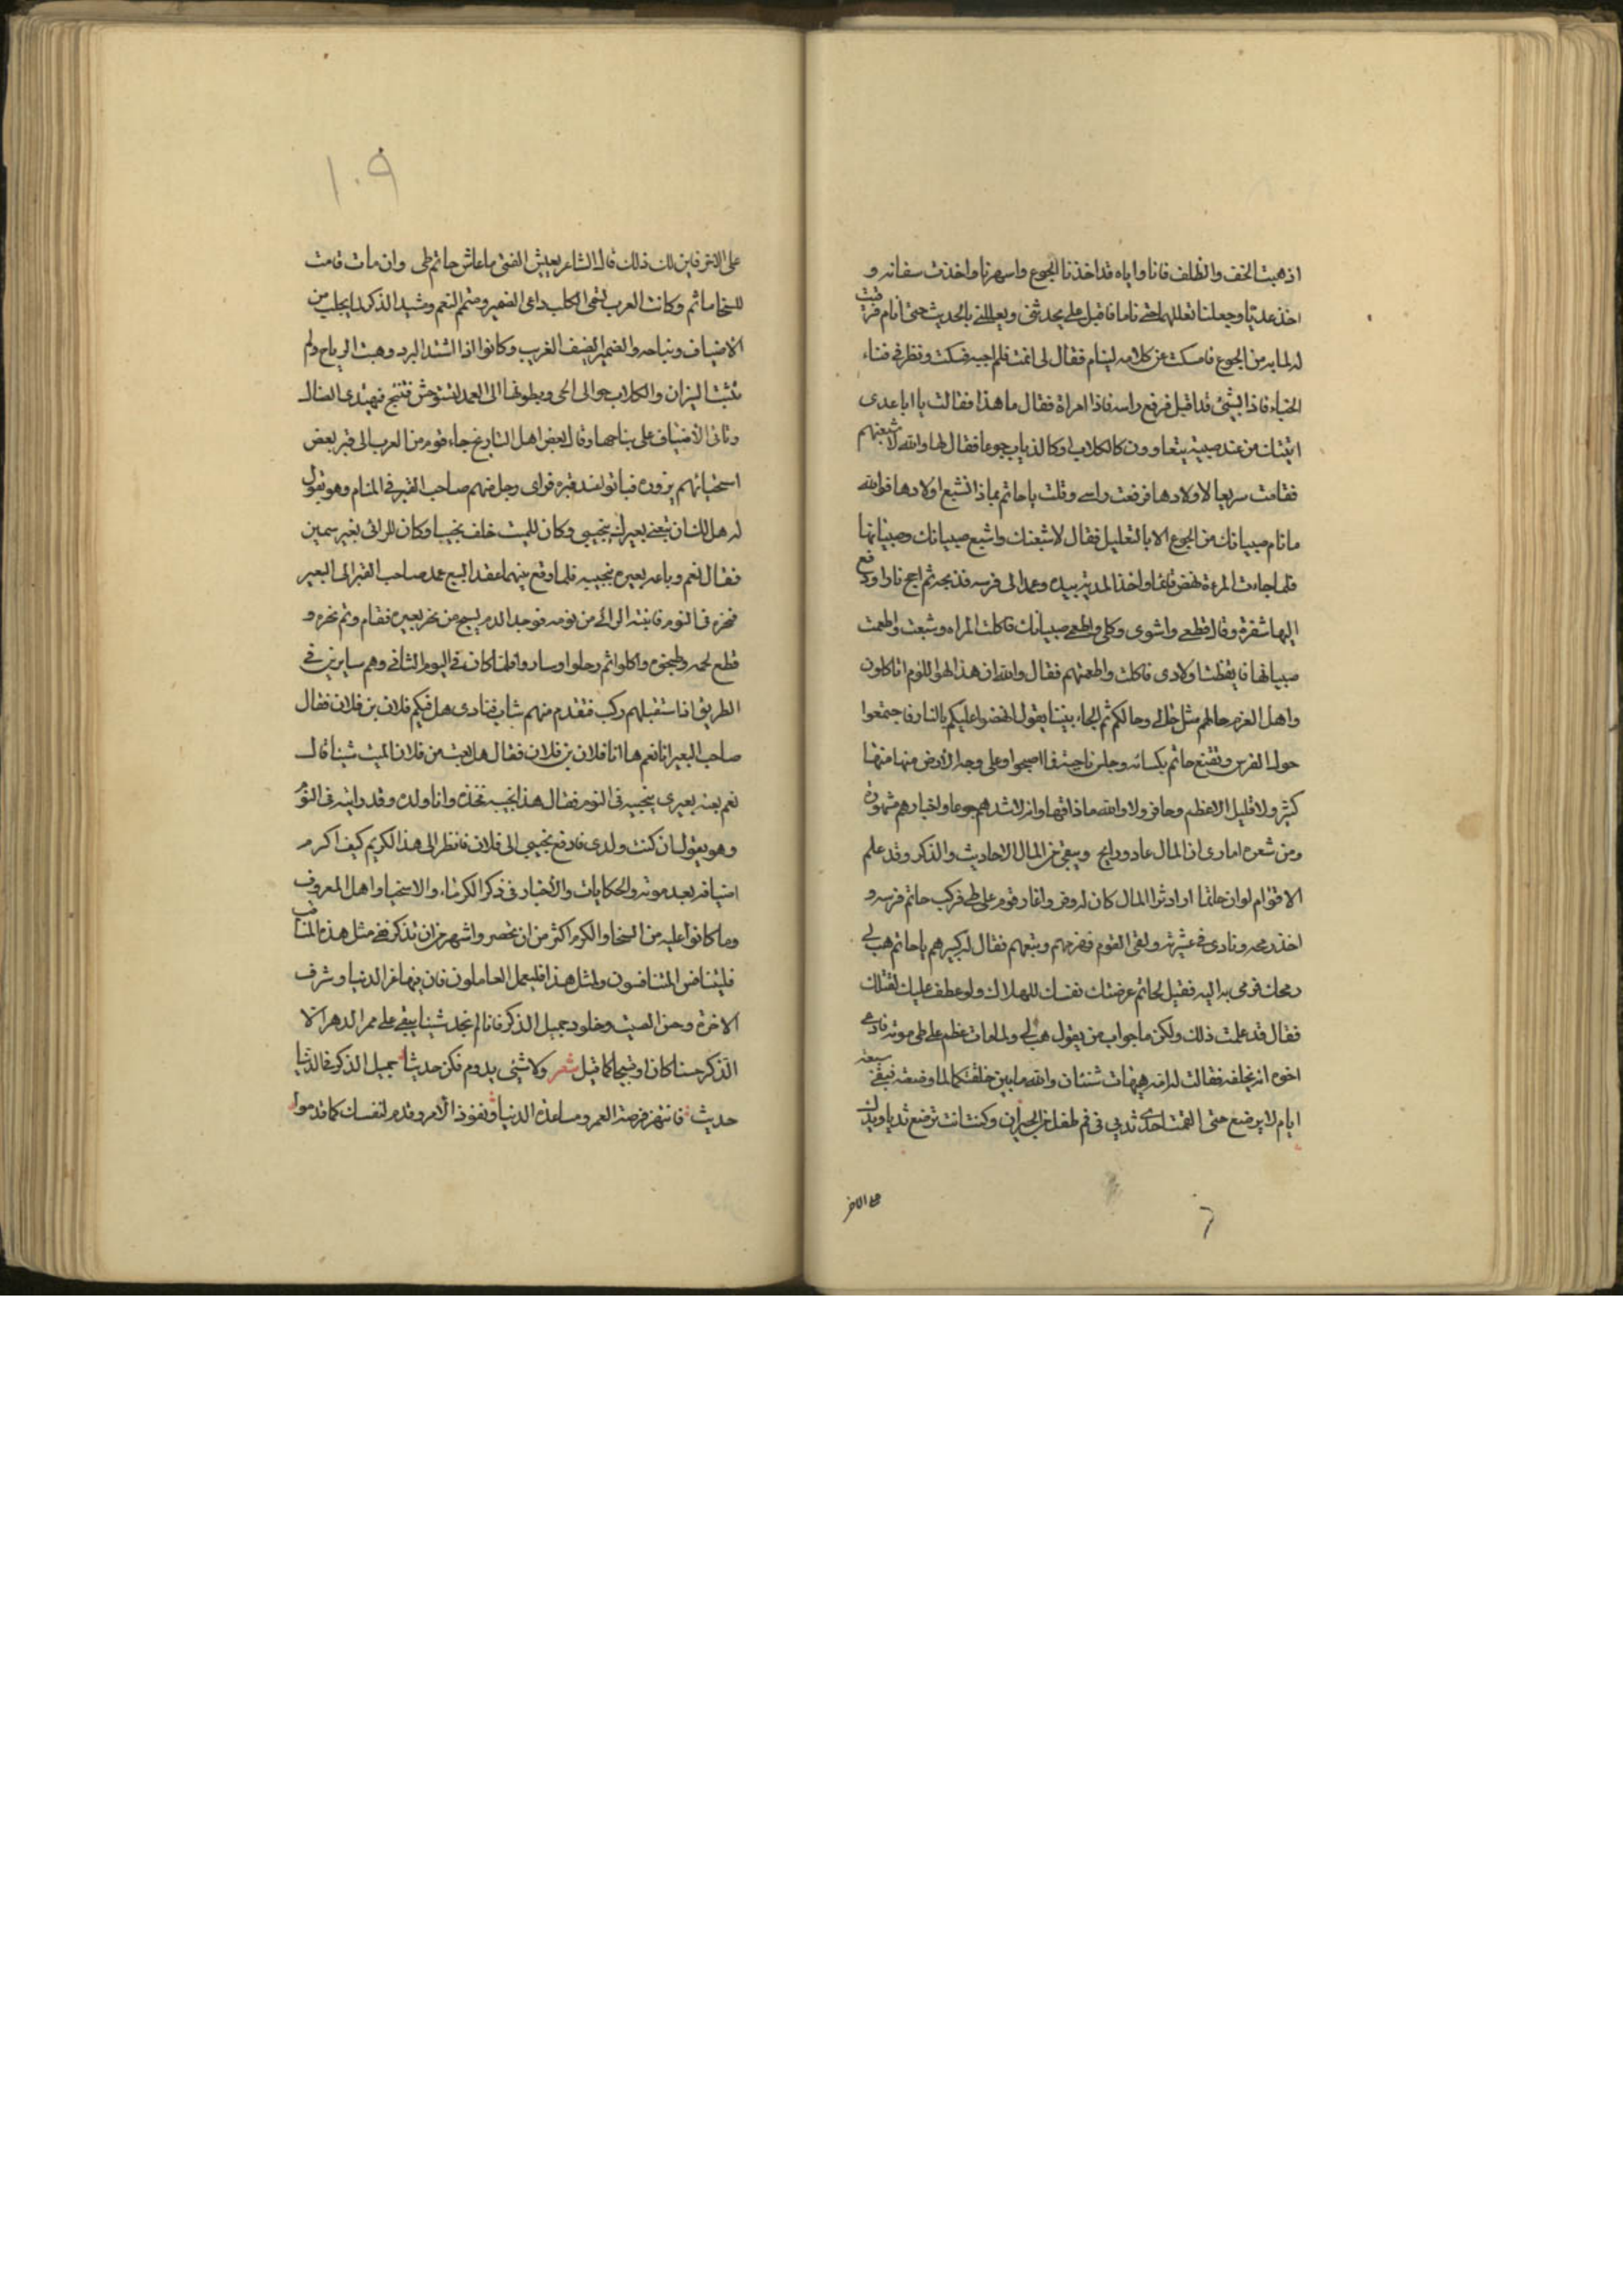 اذهبت الخف والظلف فانا واياه قد اخذنا الجوع واسهرنا واخذت سفانه و
اخذ عديا وجعلنا نعللهما حتى ناما فاقبل على يحدثني ويعللني بالحديث حتى انام فرقيت
له لما به من الجوع فامسكت عن كلامه لينام فقال لى انمت فلم اجبه فسكت ونظر في فناء
الخباء فاذا بشئ قد اقبل فرفع راسه فاذا امراة فقال ما هذا فقالت يا ابا عدى
اتيتك من عند صبية يتعاوون كالكلاب او كالذياب جوعا فقال لها والله لاشبعنهم
فقامت سريعا لاولادها فرفعت راسى وقلت يا حاتم بماذا تشبع اولادها فوالله
ما نام صبيانك من الجوع الا بالتعليل فقال لاشبعنك واشبع صبيانك وصبيانها
فلما جاءت المرءة نهض قائما واخذ المدية بيده وعمد الى فرسه فذبحه ثم اجج نارا ودفع
اليها شفرة وقال قطعى واشوى وكلى واطعمى صبيانك فاكلت المراه وشبعت واطعمت
صبيانها فايقظت اولادى فاكلت واطعمتهم فقال والله ان هذا لهو اللوم اتاكلون
واهل العزم حالهم مثل حالى وحالكم ثم الجاء بيتا يقول انهضوا عليكم بالنار فاجتمعوا
حول الفرس وتقنع حاتم بكسائه وجلس ناحية فما اصبحوا وعلى وجه الارض منها منها
كثير ولا قليل الا عظم وحافر ولا والله ما ذاقها وانه لاشدهم جوعا واخبارهم مشهورة
ومن شعره اماوى ان المال غاد ورايح ويبقى من المال الاحاديث والذكر وقد علم
الاقوام لو ان حاتما اراد ثرا المال كان له وفر واغار قوم على طى فركب حاتم فرسه و
اخذ رمحه ونادى في عشيرته ولقى القوم فهزمهم وتبعهم فقال له كبيرهم يا حاتم هب لى
رمحك فرمى به اليه فقيل لحاتم عرضت نفسك للهلاك ولو عطف عليك لقتلك
فقال قد علمت ذلك ولكن ما جواب من يقول هب لى ولما مات عظم على طى موته فادعى
اخوه انه يخلفه فقالت له امه هيهات شتان والله ما بين خلقتكما لما وضعته فبقى سبعة
ايام لا يرضع حتى القمت احدى ثديى فى فم طفل من الجيران وكنت انت ترضع ثديا ويدك
على الاخر
١٠٩
على الاخر فاين لك ذلك قال الشاعر يعيش الفتى ما عاش حاتم طى وان مات قامت
للسخا ماتم وكانت العرب تسمى الكلب داعى الضمير ومتمم النعم ومشيد الذكر لما يجلب من
الاضياف ونباحه والضمير الضيف الغريب وكانوا اذا اشتد البرد وهبت الرياح ولم
تشب النيران والكلاب حوالى الحى وربطوها الى العمد لتستوحش فتنبح فيهتدى الضال
وتاتى الاضياف على نباحها وقال بعض اهل التاريخ جاء قوم من العرب الى قبر بعض
اسخيائهم يزوره فباتوا عند قبره فراى رجل منهم صاحب القبر فى المنام وهو يقول
له هل لك ان تبعنى بعيرك بنجيبى وكان للميت خلف نجيبا وكان للرائى بعير سمين
فقال نعم وباعه بعيره بنجيبه فلما وقع بينهما عقد البيع عمد صاحب القبر الى البعير
فنحره فى النوم فانتبه الرائى من نومه فوجد الدم يسيح من نحر بعيره فقام وتم نحره و
قطع لحمه وطبخوه واكلوا ثم رحلوا وساروا فلما كان فى اليوم الثانى وهم سايرين فى
الطريق اذا استقبلهم ركب فتقدم منهم شاب فنادى هل فيكم فلان بن فلان فقال
صاحب البعير انا نعم ها انا فلان بن فلان فقال هل بعت من فلان الميت شيئا قال
نعم بعته بعيرى بنجيبه فى النوم فقال هذا نجيبه فخذه وانا ولده وقد رايته فى النوم
وهو يقول ان كنت ولدى فادفع نجيبى الى فلان فانظر الى هذا الكريم كيف اكرم
اضيافه بعد موته والحكايات والاخبار فى ذكر الكرماء والاسخيا واهل المعروف
وما كانوا عليه من السخا والكرم اكثر من ان تحصر واشهر من ان تذكر ففى مثل هذه المناقب
فليتنافس المتنافسون ولمثل هذا فليعمل العاملون فان فيها عز الدنيا وشرف
الاخرة وحسن الصيت وخلود جميل الذكر فانا لم نجد شيئا يبقى على ممر الدهر الا
الذكر حسنا كان او قبيحا كما قيل شعر ولا شئى يدوم فكن حديثا جميل الذكر فالدنيا
حديث فانتهز فرصة العمر ومساعدة الدنيا ونفوذ الامر وقدم لنفسك كما قدموا